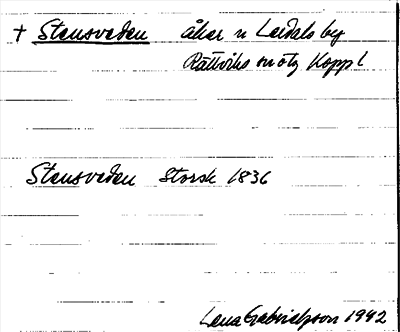 † Stensveden åker n Lerdals by
Rättviks
Stensveden Storsk 1836
Lena Gabrielsson 1942